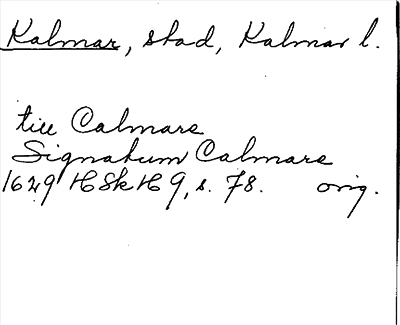 Kalmar, stad, Kalmar l.
till Calmare
Signatum Calmare
1629 HSkH 9, s. 78. orig.